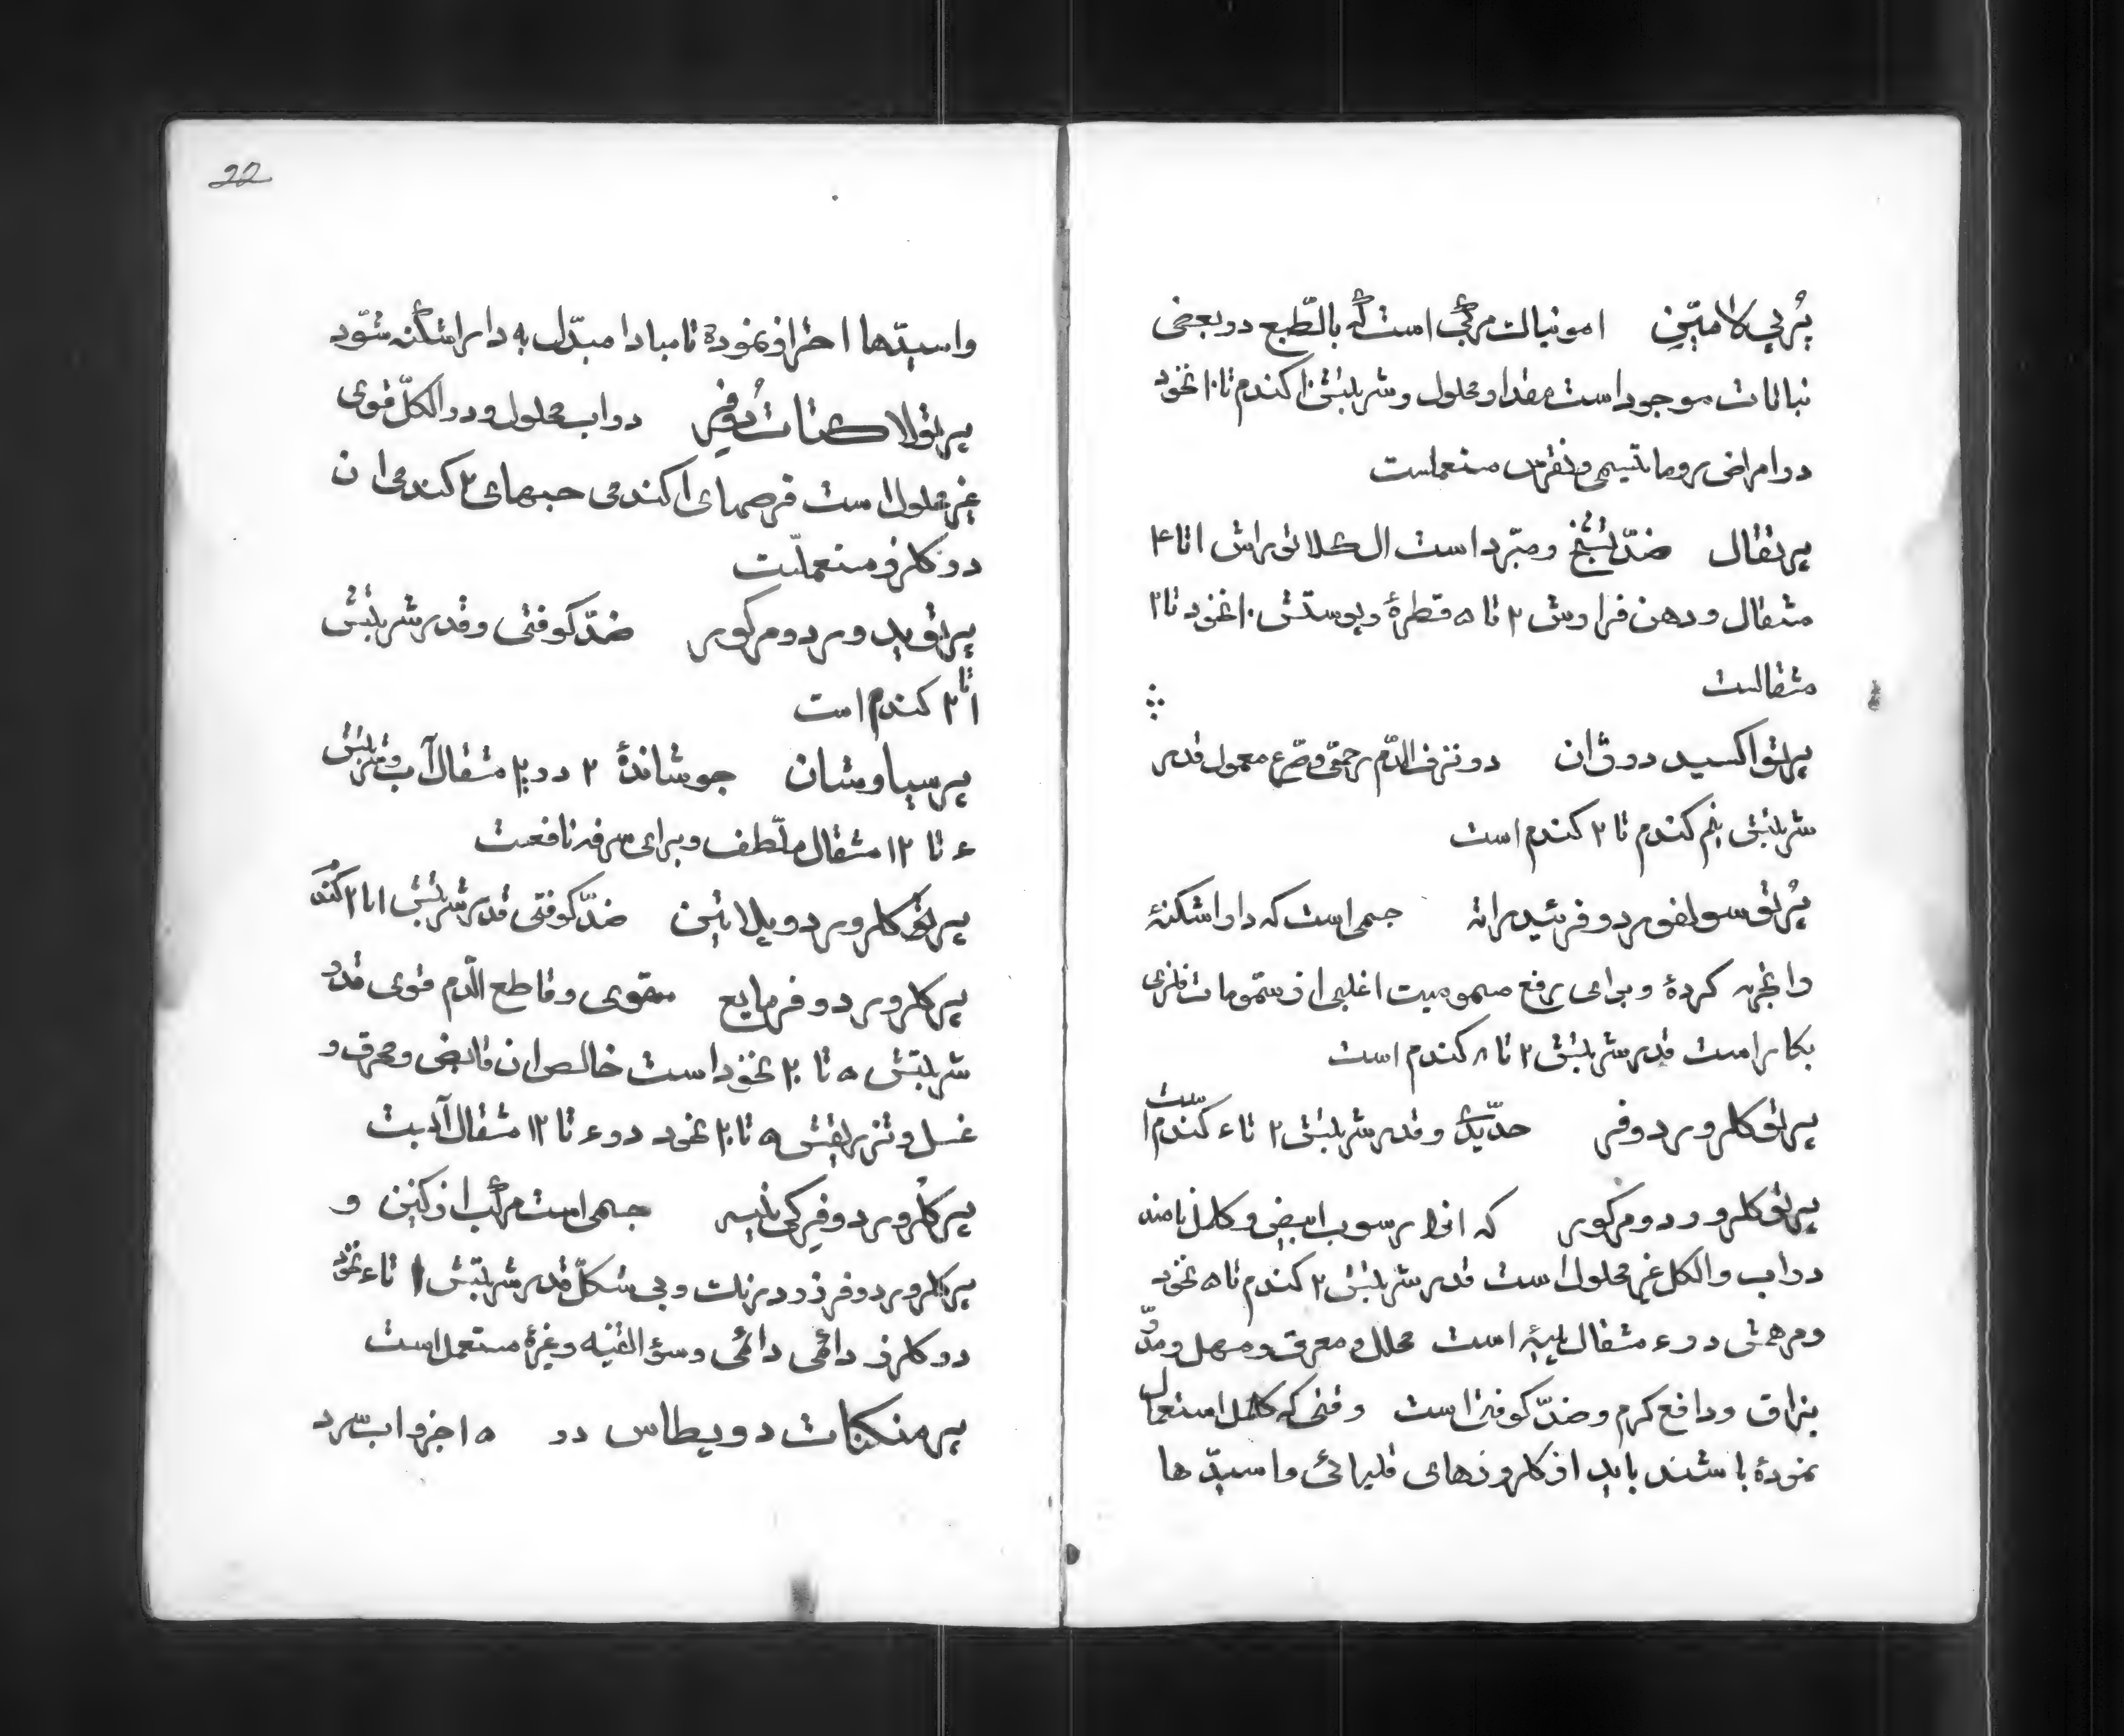 پُرپیلامیّن امونیاک مرکّب است که بالطّبع در بعضی
نباتات موجود است مقدار محلول و شربتش ۱۰ کندم تا ۱۰ نخود
در امراض روماتیسمی و نقرس مستعملست
پرتقال ضدّ تشنّج و مبرّد است ال کلائو براش ۱ تا ۴
مثقال و دهن فرارش ۲ تا ۵ قطرهٔ و پوستش ۱۰ نخود تا ۲
مثقالست
پرتو اکسید دو ژان در نزف الدّم رحمی و صرع معمول قدر
شربتش نیم کندم تا ۲ کندم است
پُرتو سولفور دو فر ئیدراته جسمی است که داراشکنهٔ
را تجزیه کردهٔ و برای رفع مسمومیت اغلبی از سمّومات فلزی
بکار است قدر شربتش ۲ تا ۸ کندم است
پرتو کلرور دو فر حدّیدی و قدر شربتش ۲ تا ۶ کندم است
پرتو کلرور دو مرکور که انرا رسوب ابیض و کلمل نامند
در اب و الکل غیر محلول است قدر شربتش ۲ کندم تا ۵ نخود
و مرهمش در ۶ مثقال پیه است محلل و معرق و مسهل و مدّر
بزاق و دافع کرم و ضدّ کوفت است وقتی که کلمل استعمال
نمودهٔ باشند باید از کلرورهای قلیائی و اسیدّ ها
22
و اسیدّها احتراز نمودهٔ تا مبادا مبدّل به داراشکنه شوّد
پرتو لاکتات دُوفِر در اب محلول و در الکلّ قوی
غیر محلول است قرصهای ۱ کندمی حبهای ۲ کندمی ان
در کلرز مستعملّت
پرتو ید ور دو مرکور ضدّ کوفتی و قدر شربتش
۱ تا ۲ کندم است
پرسیاوشان جوشاندهٔ ۲ در ۲۰ مثقال آب و شربتش
۶ تا ۱۲ مثقال ملّطف و برای سرفه نافعت
پرتو کلرور دو پلاتین ضدّ کوفتی قدر شربتش ۱ تا ۲ کندم
پرکلرور دو فر مایع مقوی و قاطع الدّم قوی قدر
شربتش ۵ تا ۲۰ نخود است خالص ان قابض و محرق و
غسل و تزریقش ۵ تا ۲۰ نخود در ۶ تا ۱۲ مثقال آبست
پرکلرور دو فِر کی نیه جسمی است مرکّب از کنین و
پرکلرور دو فر زرد رنگ و بی شکلّ قدر شربتش ۱ تا ۶ نخود
در کلرز دائمی دائمی و سؤ القنیه و غیرهٔ مستعمل است
پرمنکنات دو پطاس در ۱۵ جزو اب سّرد